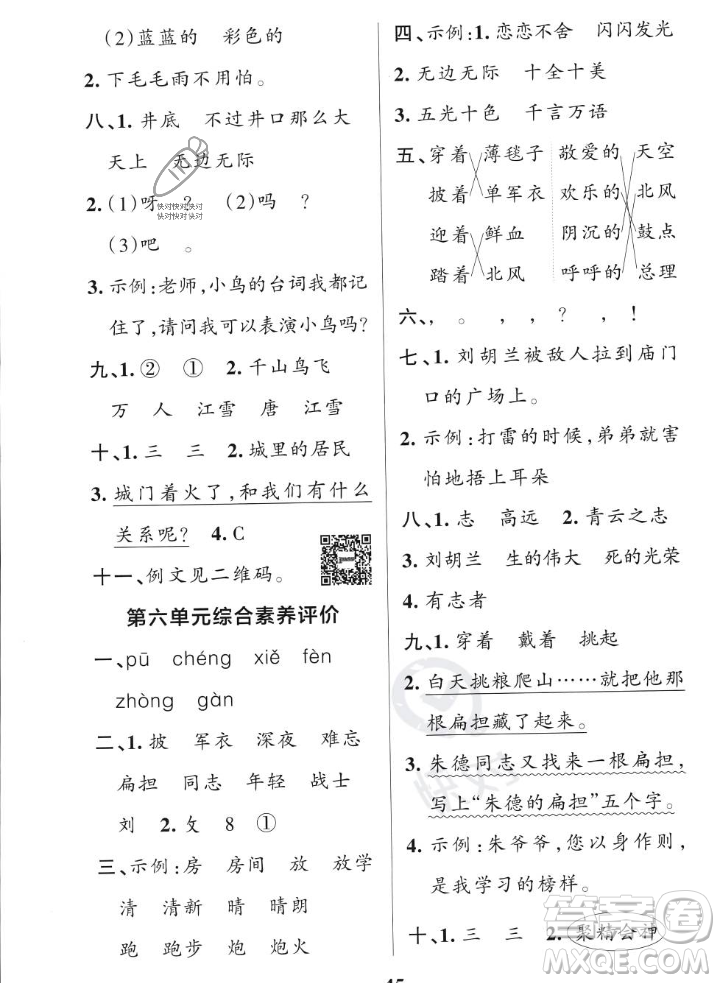 (2)蓝蓝的 彩色的
2. 下毛毛雨不用怕。
八、1. 井底 不过井口那么大
天上 无边无际
2. (1)呀 ? (2)吗 ?
(3)吧 。
3. 示例:老师,小鸟的台词我都记
住了,请问我可以表演小鸟吗?
九、1. ② ① 2. 千山鸟飞
万 人 江雪 唐 江雪
十、1. 三 三 2. 城里的居民
3. 城门着火了,和我们有什么
关系呢? 4. C
十一、例文见二维码。
第六单元综合素养评价
一、pū chéng xiě fèn
zhòng gàn
二、1. 披 军衣 深夜 难忘
扁担 同志 年轻 战士
刘 2. 攵 8 ①
三、示例:房 房间 放 放学
清 清新 晴 晴朗
跑 跑步 炮 炮火
四、示例:1. 恋恋不舍 闪闪发光
2. 无边无际 十全十美
3. 五光十色 千言万语
五、穿着 薄毯子 敬爱的 天空
披着 单军衣 欢乐的 北风
迎着 鲜血 阴沉的 鼓点
踏着 北风 呼呼的 总理
六、, 。 , , ? , !
七、1. 刘胡兰被敌人拉到庙门
口的广场上。
2. 示例:打雷的时候,弟弟就害
怕地捂上耳朵
八、1. 志 高远 2. 青云之志
3. 刘胡兰 生的伟大 死的光荣
4. 有志者
九、1. 穿着 戴着 挑起
2. 白天挑粮爬山……就把他那
根扁担藏了起来。
3. 朱德同志又找来一根扁担,
写上“朱德的扁担”五个字。
4. 示例:朱爷爷,您以身作则,
是我学习的榜样。
十、1. 三 三 2. 聚精会神
快对快对快对
快对快对快对
答案圈
MXQE.COM